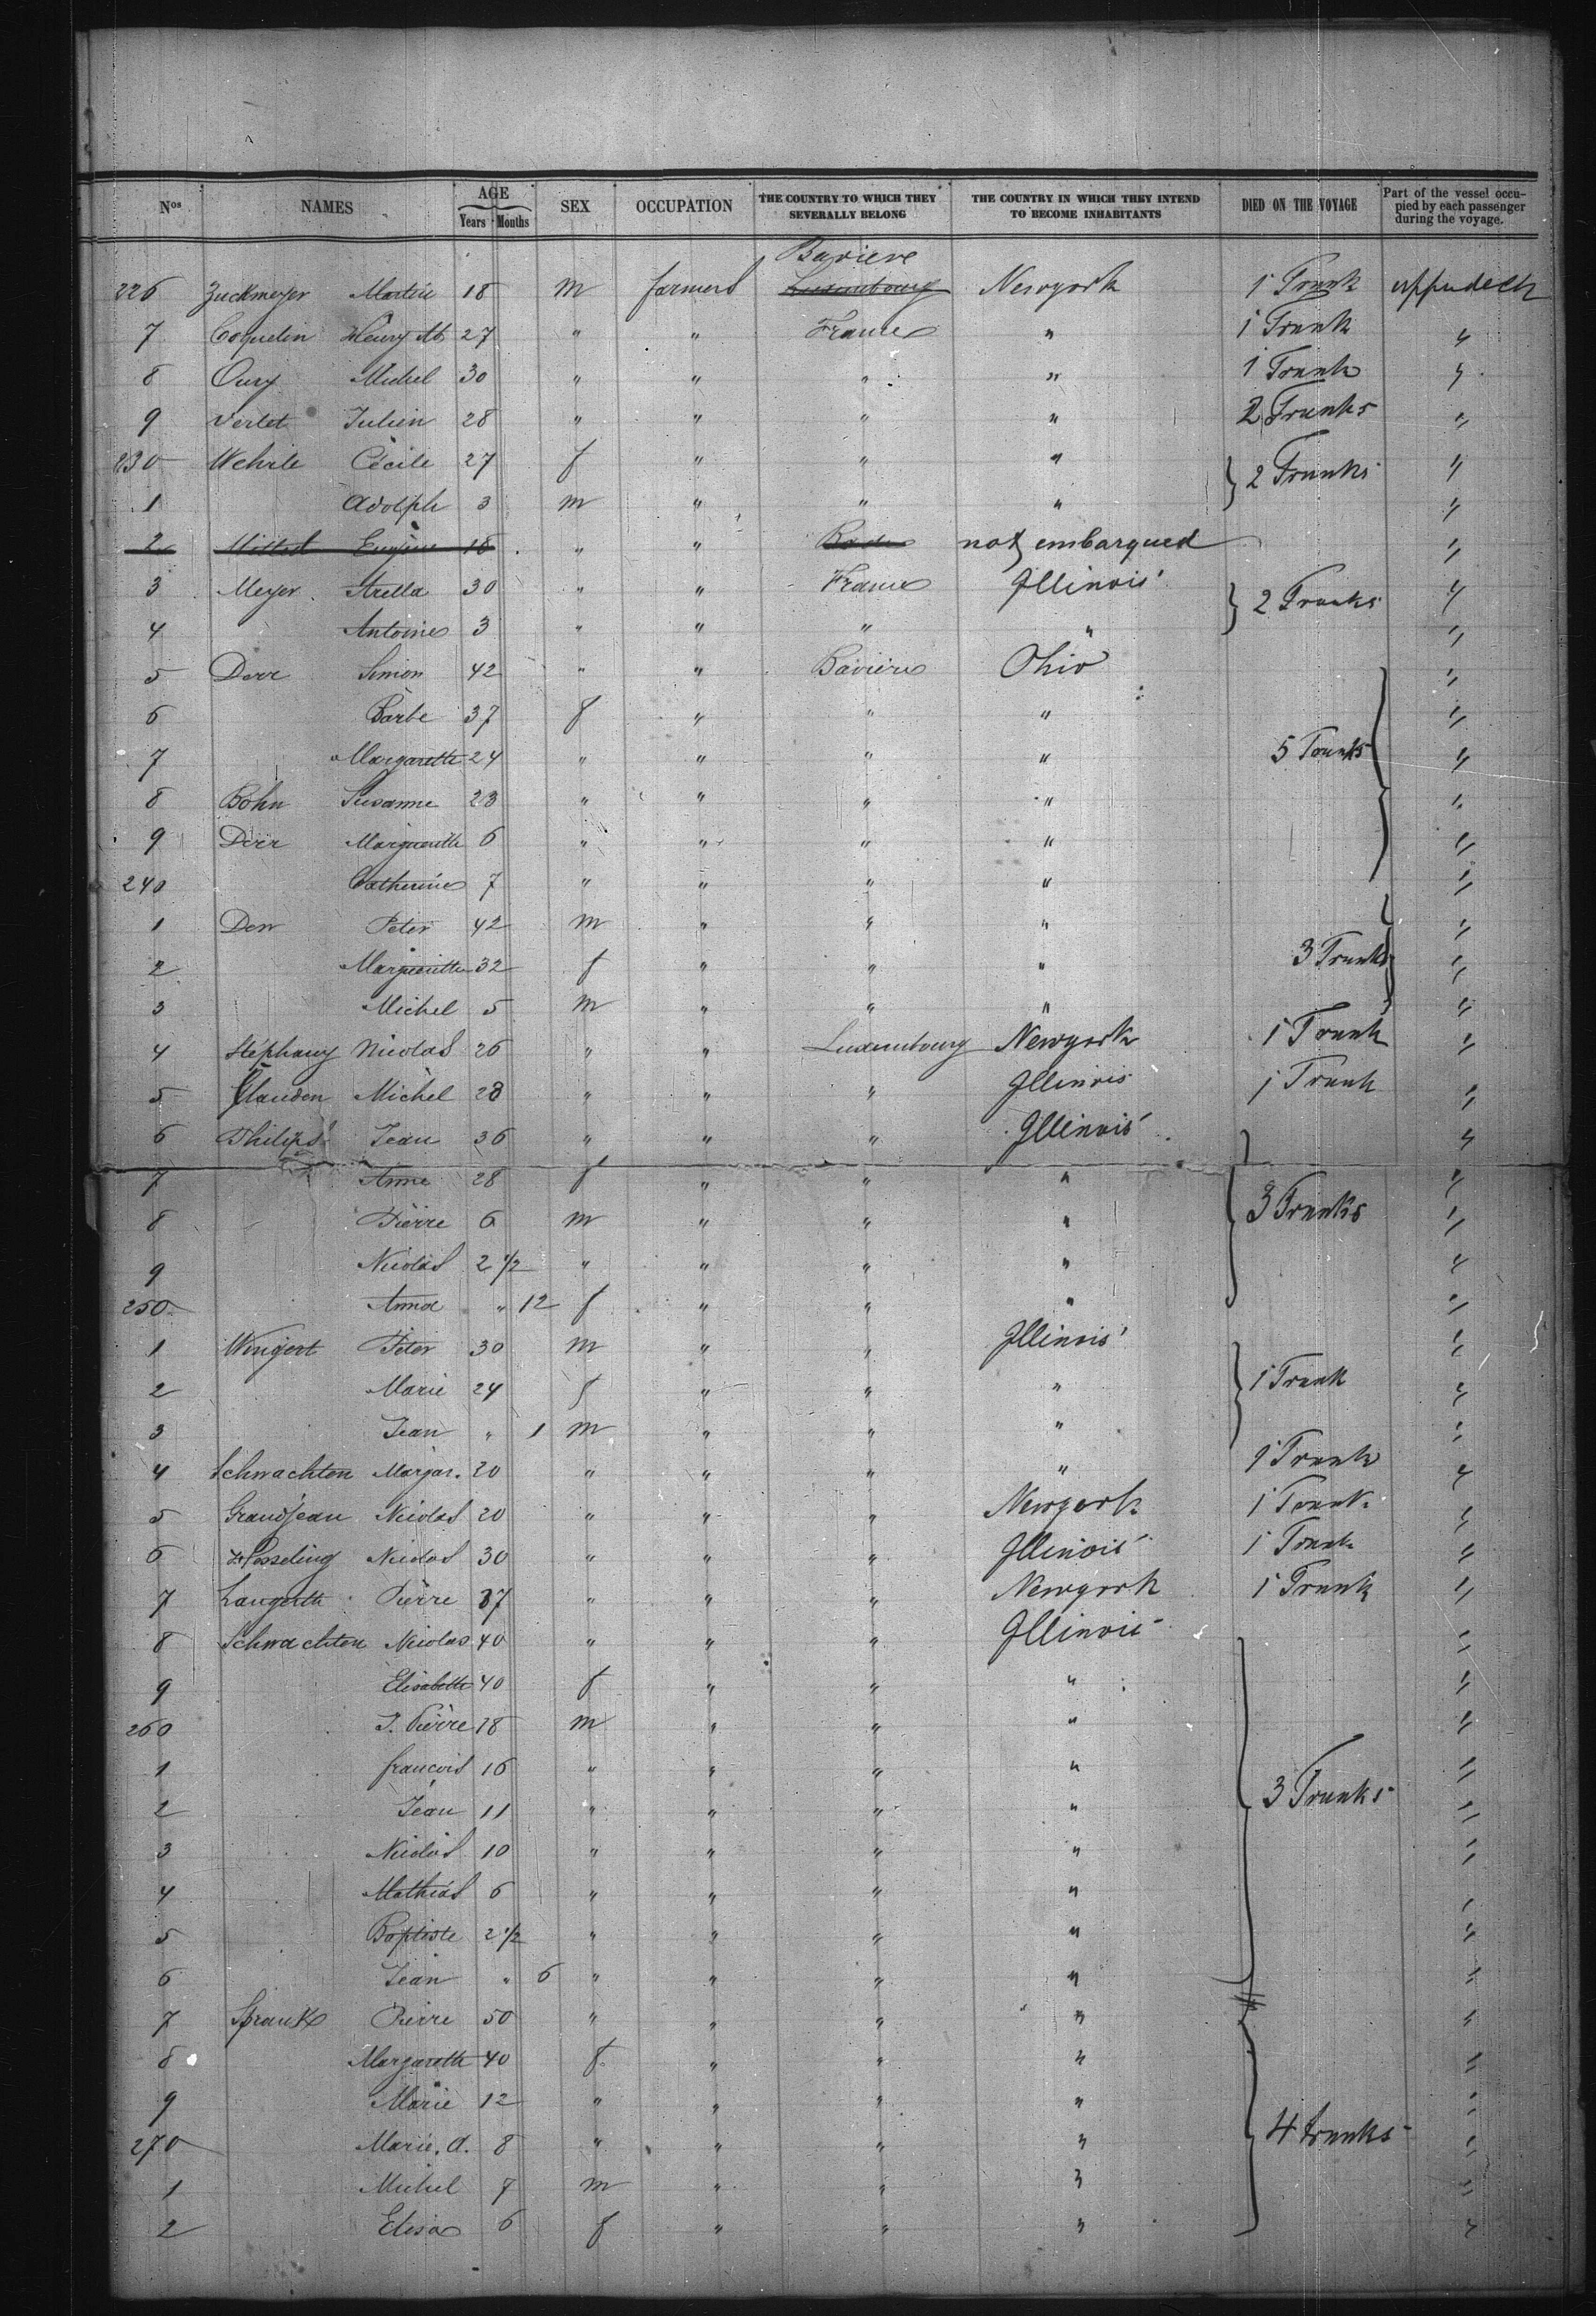 Nos NAMES AGE Years Months SEX OCCUPATION THE COUNTRY TO WHICH THEY SEVERALLY BELONG THE COUNTRY IN WHICH THEY INTEND TO BECOME INHABITANTS DIED ON THE VOYAGE Part of the vessel occu-pied by each passenger during the voyage.
Baviere
226 Zuckmeyer Martin 18 m farmers Luxembourg Newyork 1 Trunk uppudeck
7 Coquelin Henry M 27 " " France " 1 Trunk "
8 Oury Michel 30 " " " " 1 Trunk "
9 Verlet Julien 28 " " " " 2 Trunks "
230 Wehrle Cécile 27 f " " " 2 Trunks "
1 Adolph 3 m " " " "
2 Eugène 18 " " Bade not embarqued "
3 Meyer Arella 30 " " France Illinois 2 Trunks "
4 Antoine 3 " " " " "
5 Derr Simon 42 " " Baviere Ohio "
6 Barbe 37 f " " " "
7 Margarette 24 " " " " 5 Trunks "
8 Bohn Susanne 23 " " " " "
9 Derr Marguerithe 6 " " " " "
240 Catherine 7 " " " " "
1 Derr Peter 42 m " " " "
2 Margueritte 32 f " " " 3 Trunks "
3 Michel 5 m " " " "
4 Stéphany Nicolas 26 " " Luxembourg Newyork 1 Trunk "
5 Flauden Michel 28 " " " Illinois 1 Trunk "
6 Philips Jean 36 " " " Illinois "
7 Anne 28 f " " " "
8 Pierre 6 m " " " 3 Trunks "
9 Nicolas 2 1/2 " " " " "
250 Anna " 12 f " " " "
1 Wingert Péter 30 m " " Illinois "
2 Marie 24 f " " " 1 Trunk "
3 Jean " 1 m " " " "
4 Schwachten Margar. 20 " " " " 1 Trunk "
5 Grandjean Nicolas 20 " " " Newyork 1 Trunk "
6 Posseling Nicolas 30 " " " Illinois 1 Trunk "
7 Langerth Pierre 37 " " " Newyork 1 Trunk "
8 Schwachten Nicolas 40 " " " Illinois "
9 Elisabeth 40 f " " " "
260 J. Pierre 18 m " " " "
1 francois 16 " " " " "
2 Jean 11 " " " " 3 Trunks "
3 Nicolas 10 " " " " "
4 Mathias 6 " " " " "
5 Baptiste 2 1/2 " " " " "
6 Jean " 6 " " " " "
7 Spranck Pierre 50 " " " " "
8 Margareth 40 f " " " "
9 Marie 12 " " " " "
270 Marie. A. 8 " " " " 4 trunks "
1 Michel 7 m " " " "
2 Elisa 6 f " " " "